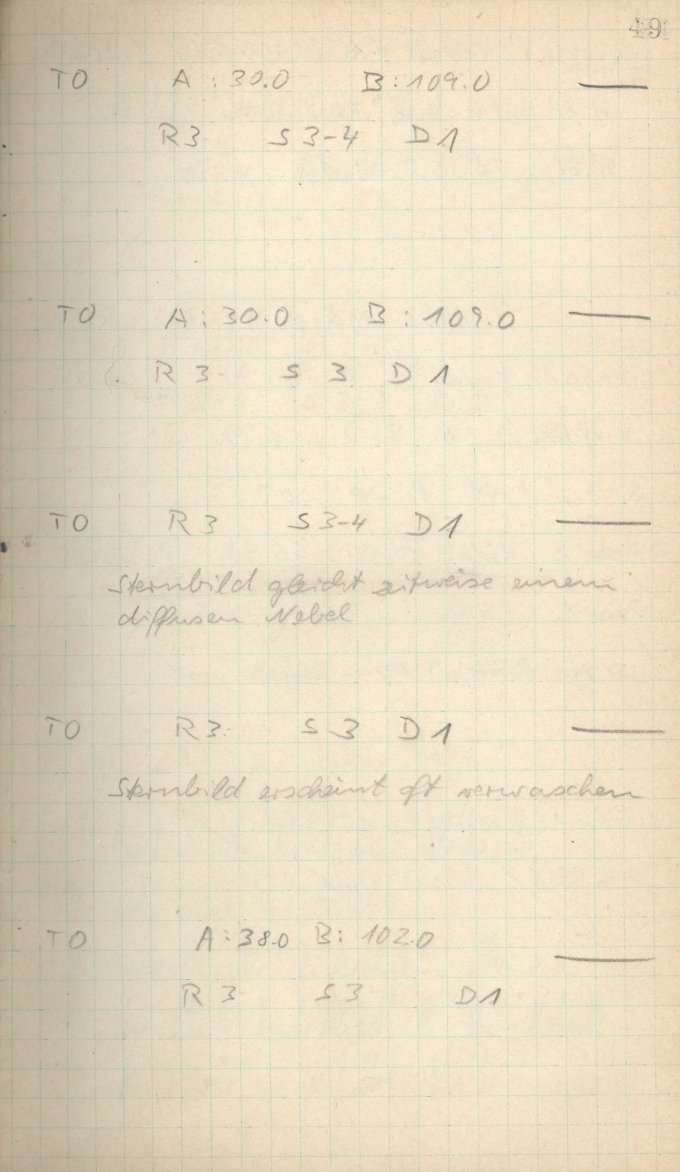 49
TO A : 30.0 B : 109.0 —
R3 S 3-4 D1
TO A : 30.0 B : 109.0 —
R 3 S 3 D 1
TO R 3 S 3-4 D1 —
Sternbild gleicht zeitweise einem
diffusen Nebel
TO R 3 S 3 D 1 —
Sternbild erscheint oft verwaschen
TO A : 38.0 B : 102.0 —
R 3 S 3 D1